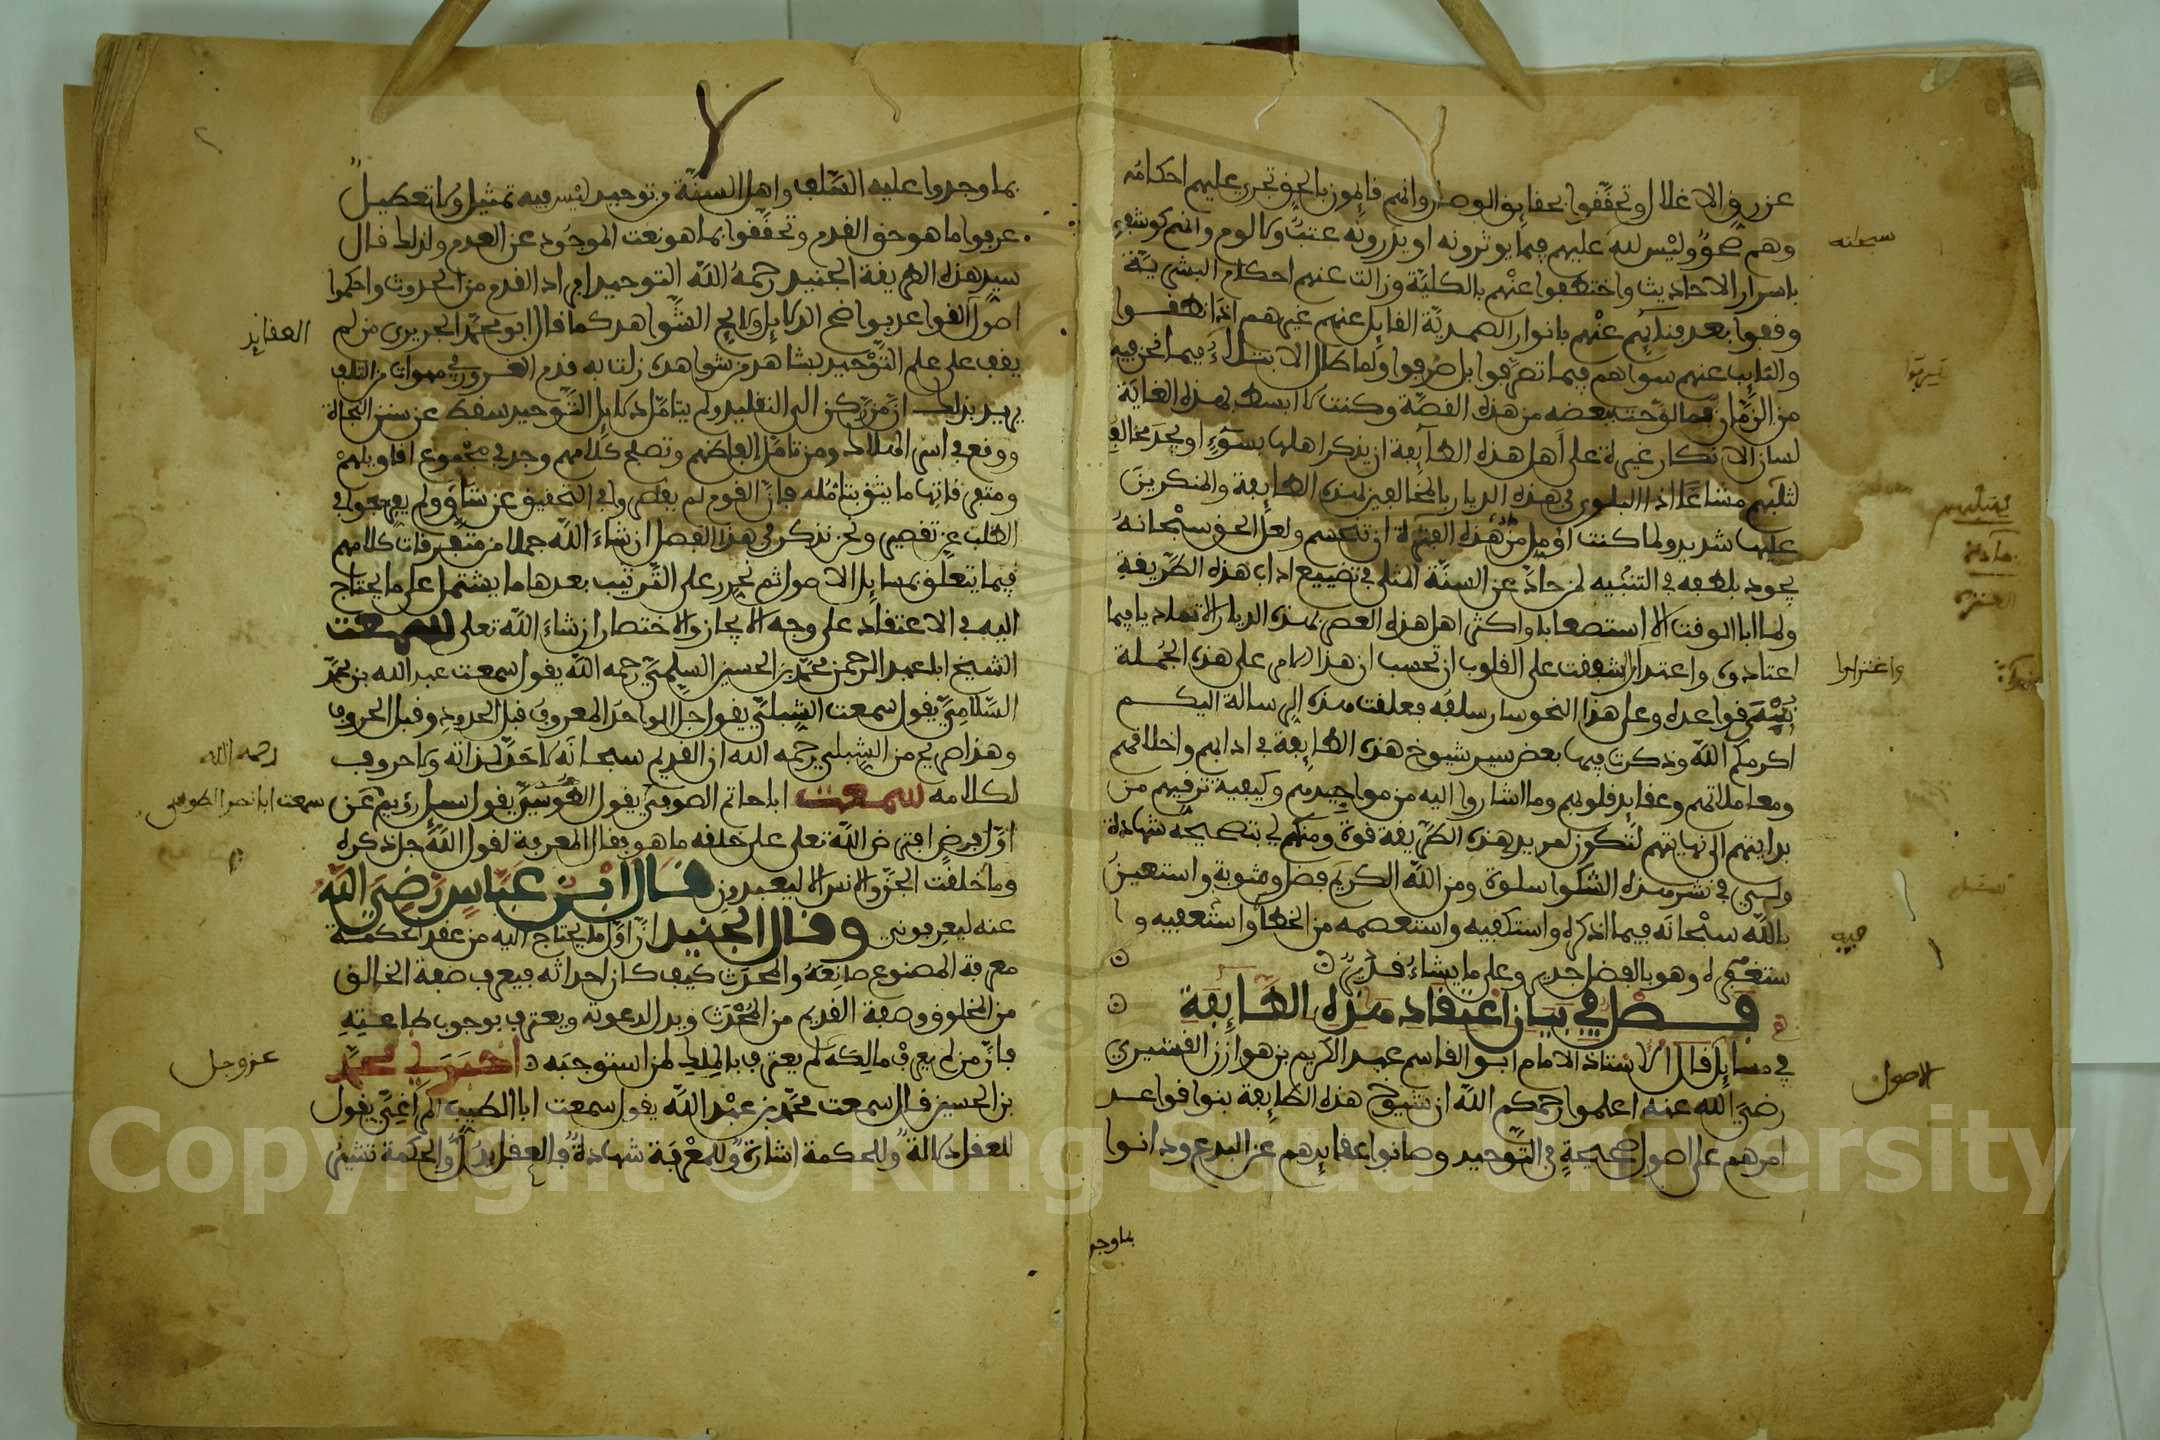 عن رق الاغلال وتحققوا بحقايق الوصال وانهم قايمون بالحق تجري عليهم احكامه
وهم محو وليس لله عليهم فيما يوثرونه او يذرونه عتب ولا لوم وانهم كوشفوا
باسرار الاحاديث واختطفوا عنهم بالكلية وزالت عنهم احكام البشرية
وقفوا بعد فنآئهم عنهم بانوار الصمدية القايل عنهم غيرهم اذا نطقوا
والنايب عنهم سواهم فيما تصرفوا بل صرفوا ولما طال الابتلاء فيما نحن فيه
من الزمان بما لوحت ببعضه من هذه القصة وكنت لا ابسط لهذه الغاية
لسان الانكار غيرة على اهل هذه الطآيفة ان يذكر اهلها بسوء او يجد مخالف
لثلبهم مساغا اذ البلوى في هذه الديار بالمخالفين لهذه الطايفة والمنكرين
عليها شديد ولما كنت اومل من هذه الفترة ان تنحسم ولعل الحق سبحانه
يجود بلطفه في التنبيه لمن حاد عن السنة المثلى في تضييع اداب هذه الطريقة
ولما ابا الوقت الا استصعابا واكثر اهل هذه العصر بهذه الديار الا تماديا فيما
اعتادوه واعتد اشفقت على القلوب ان تحسب ان هذا الامر على هذه الجملة
بني قواعده وعلى هذا النحو سار سلفه فعلقت هذه الرسالة اليكم
اكرمكم الله وذكرت فيها بعض سير شيوخ هذه الطايفة في ادابهم واخلاقهم
ومعاملاتهم وعقايد قلوبهم وما اشاروا اليه من مواجيدهم وكيفية ترقيهم من
بدايتهم الى نهايتهم لتكون لمريد هذه الطريقة قوة ومنكم لي بتصحيحه شهادة
ولي في نشر هذه الشكوا سلوة ومن الله الكريم فضل ومثوبة واستعين
بالله سبحانه فيما اذكره واستكفيه واستعصمه من الخطأ واستعفيه وا
ستغفره وهو بالفضل جدير وعلى ما يشاء قدير
فصل في بيان اعتقاد هذه الطآئفة
في مسايل قال الاستاذ الامام ابو القاسم عبد الكريم بن هوازن القشيري
رضي الله عنه اعلموا رحمكم الله ان شيوخ هذه الطايفة بنوا قواعد
امرهم على اصول صحيحة في التوحيد وصانوا عقايدهم عن البدع ودانوا
بما وجد
سبحانه
واغتزارا
فيه
الاصول
بما وجدوا عليه السلف واهل السنة من توحيد ليس فيه تمثيل ولا تعطيل
عرفوا ما هو حق القدم وتحققوا بما هو نعت الموجود عن العدم ولذلك قال
سيد هذه الطريفة الجنيد رحمه الله التوحيد افراد القدم من الحدوث واحكموا
اصول القواعد بواضح الدلايل ولايح الشواهد كما قال ابو محمد الجريري من لم
يقف على علم التوحيد بشاهد من شواهده زلت به قدم الغرور في مهوات من التلف
يريد بذلك ان من ركن الى التقليد ولم يتامل دلايل التوحيد سقط عن سنن النجاة
ووقع في اسر الهلاك ومن تامل الفاظهم وتصفح كلامهم وجد في مجموع اقاويلهم
ومتفرقاتها ما يثق بتامله بان القوم لم يقصروا في التحقيق عن شاو ولم يعرجوا في
الطلب على تقصير ونحن نذكر في هذا الفصل ان شاء الله جملا من متفرقات كلامهم
فيما يتعلق بمسايل الاصول ثم نحرر على الترتيب بعدها ما يشتمل على ما يحتاج
اليه في الاعتقاد على وجه الايجاز والاختصار ان شاء الله تعلى سمعت
الشيخ ابا عبد الرحمن محمد بن الحسين السلمي رحمه الله يقول سمعت عبد الله بن محمد
السلامي يقول سمعت الشبلي يقول جل الواحد المعروف قبل الحدود وقبل الحروف
وهذا صريح من الشبلي رحمه الله ان القديم سبحانه لا حد لذاته ولا حروف
لكلامه سمعت ابا حاتم الصوفي يقول الطوسي يقول سيل رويم عن
اول فرض افترض الله تعلى على خلقه ما هو فقال المعرفة لقول الله جل ذكره
وما خلقت الجن والانس الا ليعبدون قال ابن عباس رضي الله
عنه ليعرفوني وقال الجنيد ان اول ما يحتاج اليه من عقد الحكمة
معرفة المصنوع صانعه والمحدث كيف كان احداثه فيعرف صفة الخالق
من المخلوق وصفة القديم من المحدث ويذل لدعوته ويعترف بوجوب طاعته
فان من لم يعرف مالكه لم يعترف بالملك لمن استوجبه اخبرني محمد
بن الحسين قال سمعت محمد بن عبد الله يقول سمعت ابا الطيب المراغي يقول
للعقل دلالة وللحكمة اشارة وللمعرفة شهادة فالعقل يدل والحكمة تشير
العقايد
رحمه الله
سمعت ابا نصر الطوسي
عز وجل
Copyright © King Saud University